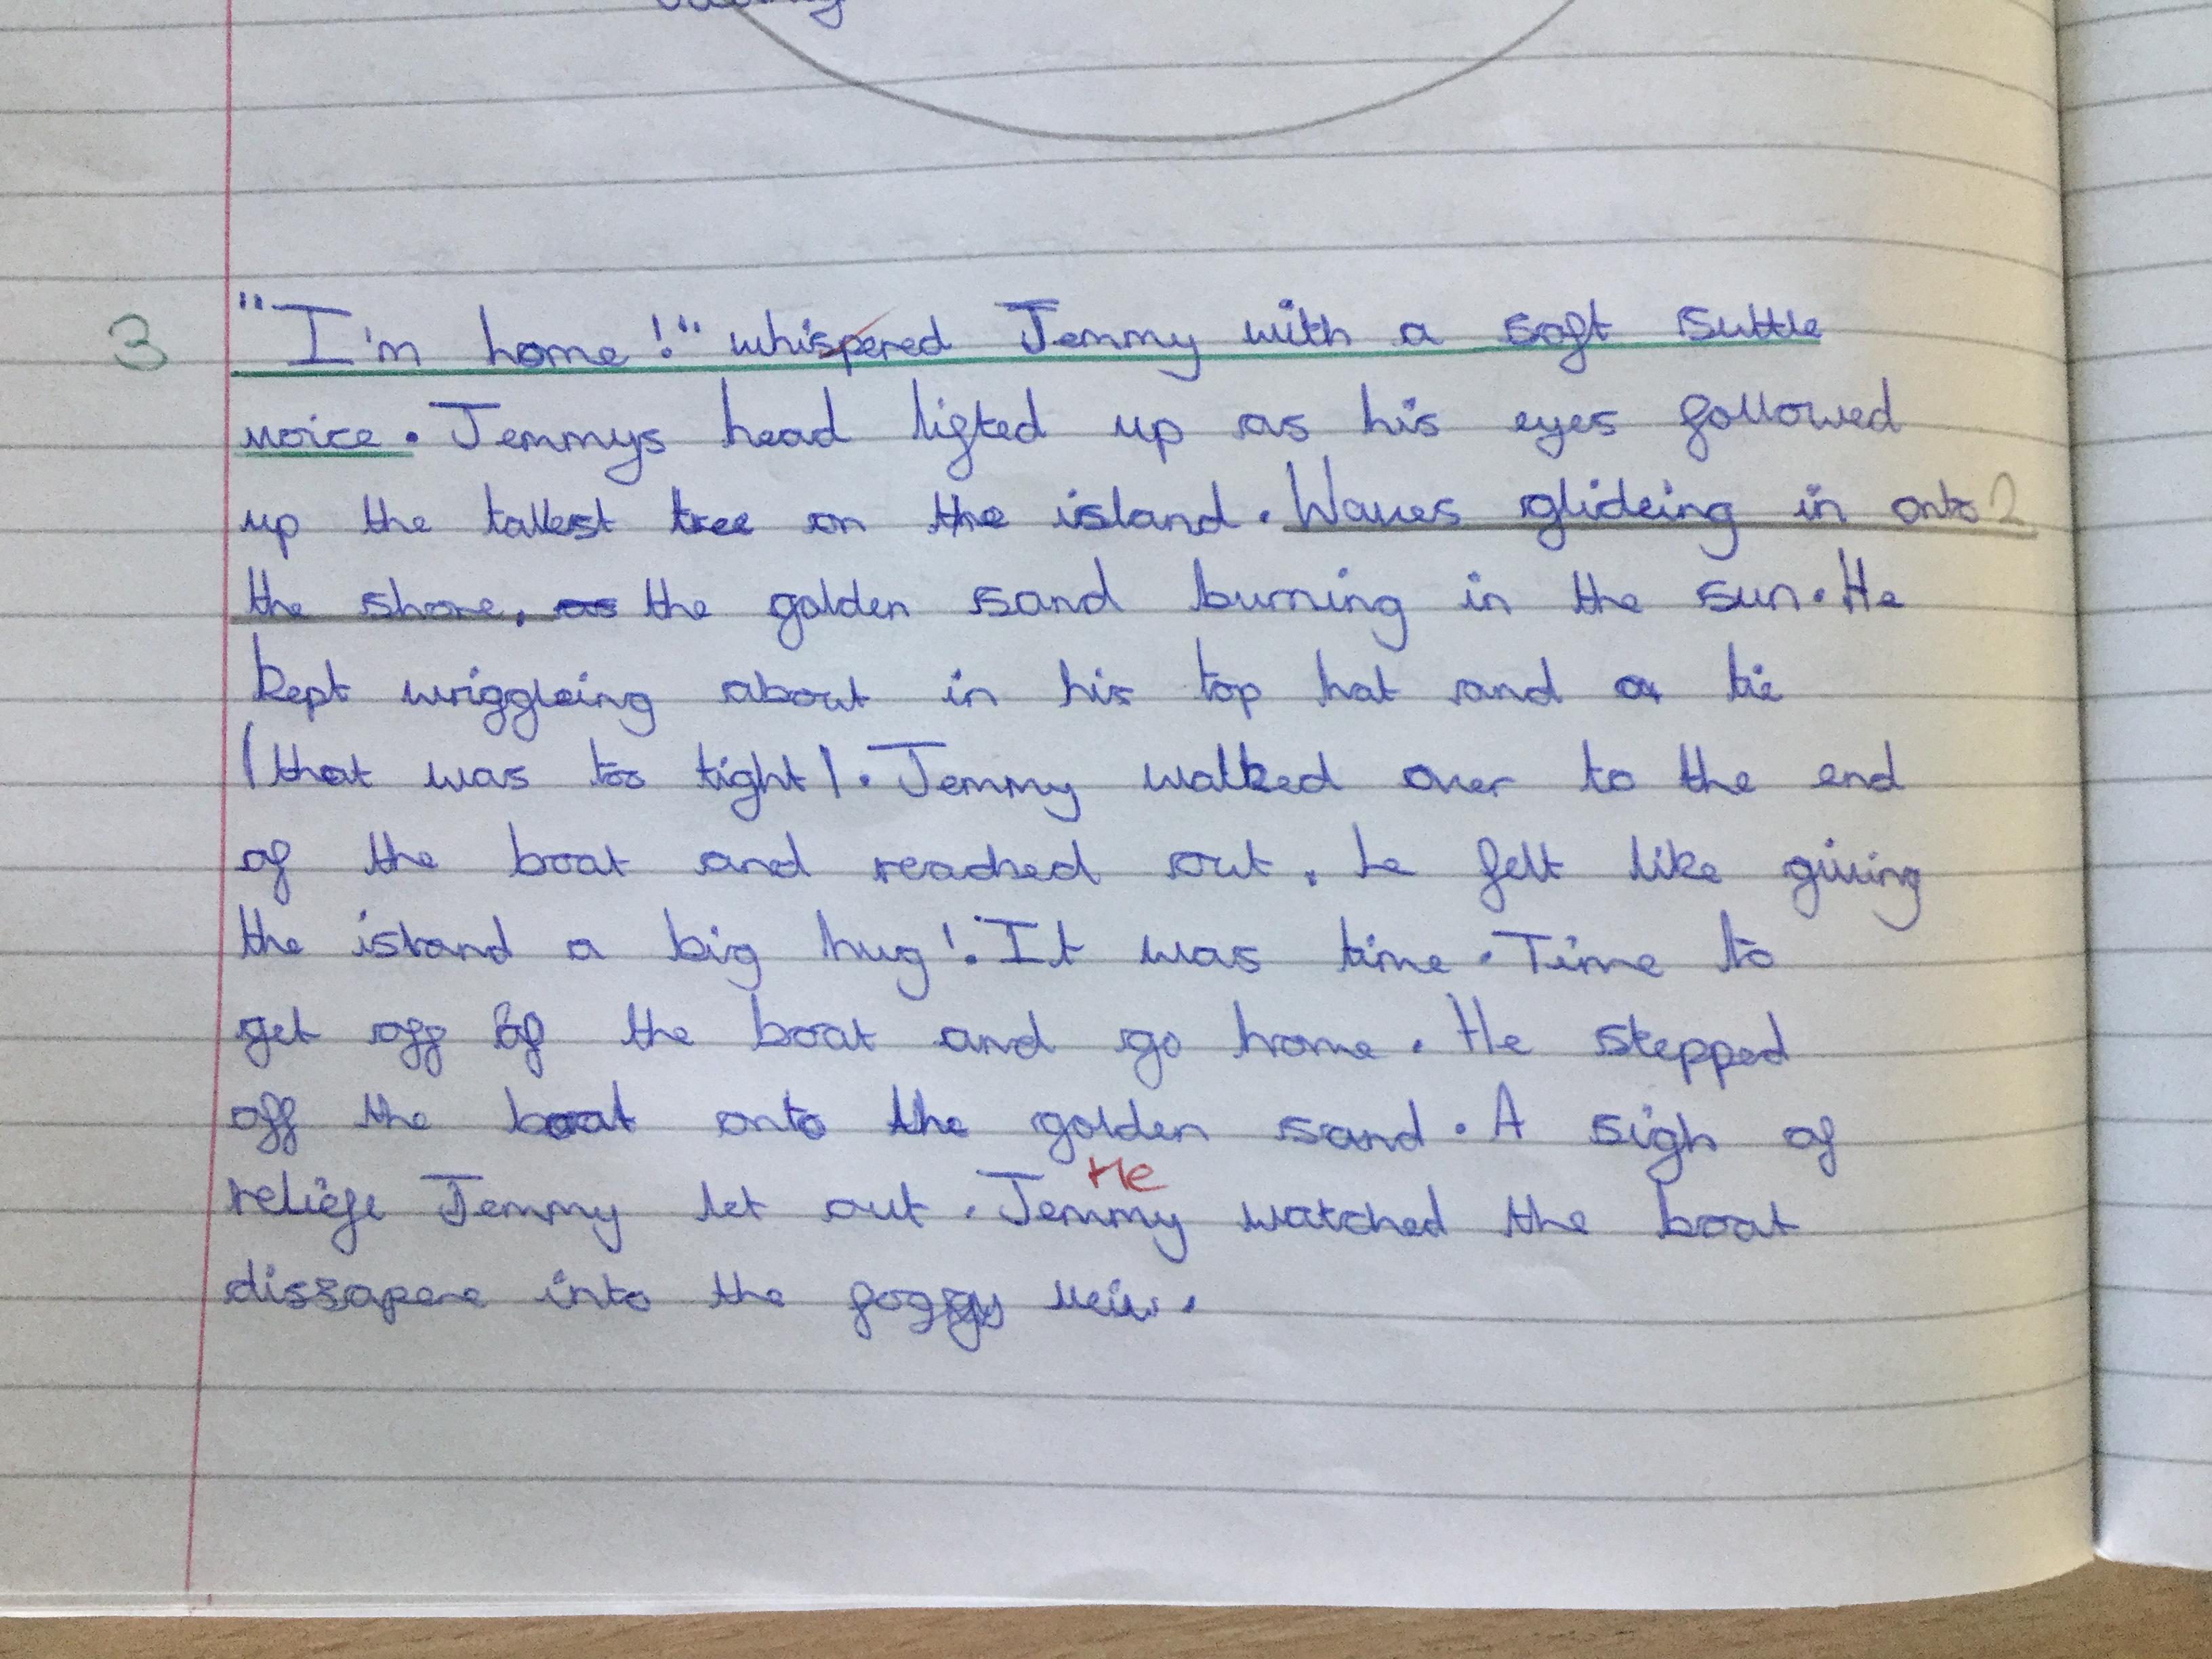 3 "I'm home!" whispered Jemmy with a soft suttle
voice. Jemmys head lifted up as his eyes followed
up the tallest tree on the island. Waves glideing in onto 2
the shore, as the golden sand burning in the sun. He
kept wriggleing about in his top hat and a tie
(that was too tight). Jemmy walked over to the end
of the boat and reached out. he felt like giving
the island a big hug! It was time. Time to
get off of the boat and go home. He stepped
off the boat onto the golden sand. A sigh of
He
reliefe Jemmy let out. Jemmy watched the boat
dissapere into the foggy veiw.